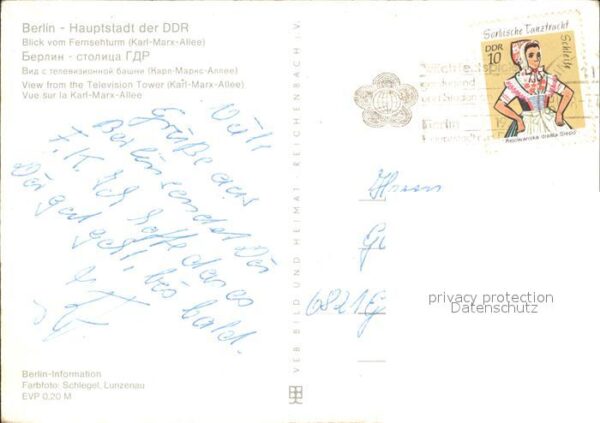 Berlin - Hauptstadt der DDR
Blick vom Fernsehturm (Karl-Marx-Allee)
Берлин - столица ГДР
Вид с телевизионной башни (Карл-Маркс-Аллее)
View from the Television Tower (Karl-Marx-Allee)
Vue sur la Karl-Marx-Allee
Grüße aus
Berlin sendet Dir
F. K. Ich hoffe das es
Dir gut geht, bis bald.
Berlin-Information
Farbfoto: Schlegel, Lunzenau
EVP 0,20 M
VEB BILD UND HEIMAT · REICHENBACH i. V.
Sorbische Tanztracht
Schleife
DDR
10
Berlin
Herrn
6821
privacy protection
Datenschutz